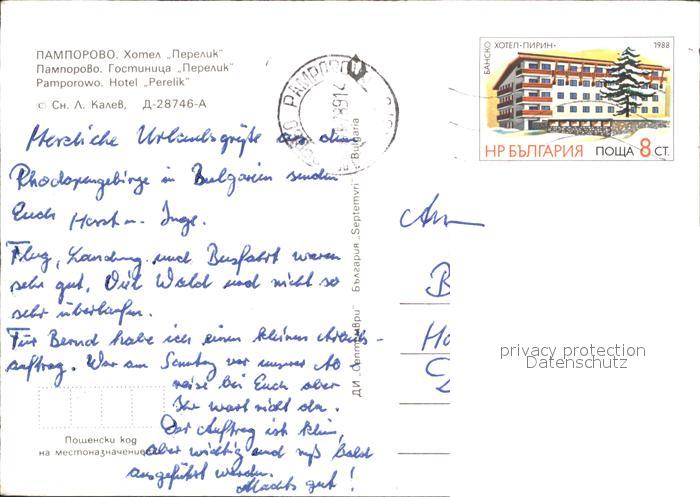 ПАМПОРОВО. Хотел „Перелик"
Пампорово. Гостиница „Перелик"
Pamporowo. Hotel „Perelik"
© Сн. Л. Калев, Д-28746-А
Herzliche Urlaubsgrüße aus dem
Rhodopengebirge in Bulgarien senden
Euch Horst u. Inge.
Flug, Landung und Busfahrt waren
sehr gut. Viel Wald und nicht so
sehr überlaufen.
Für Bernd habe ich einen kleinen Arbeits-
auftrag. War am Samstag vor unserer Ab-
reise bei Euch aber
Ihr wart nicht da.
Der Auftrag ist klein,
aber wichtig und muß bald
ausgeführt werden.
Machts gut!
Пощенски код
на местоназначение
ДИ „Септември" България „Septemvri" Bulgaria
PAMPORO
БАНСКО ХОТЕЛ•ПИРИН• 1988
НР БЪЛГАРИЯ ПОЩА 8 СТ.
An
B
Ha
privacy protection
Datenschutz